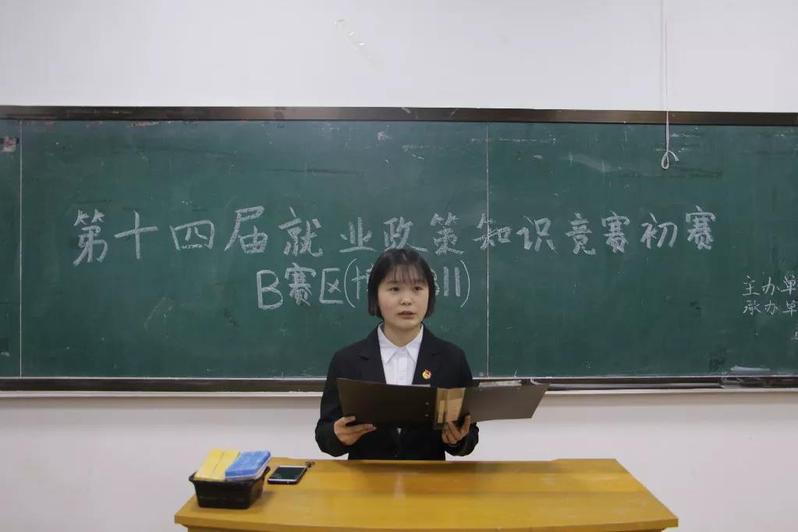 第十四届就业政策知识竞赛初赛
B赛区(
主办单
承办单